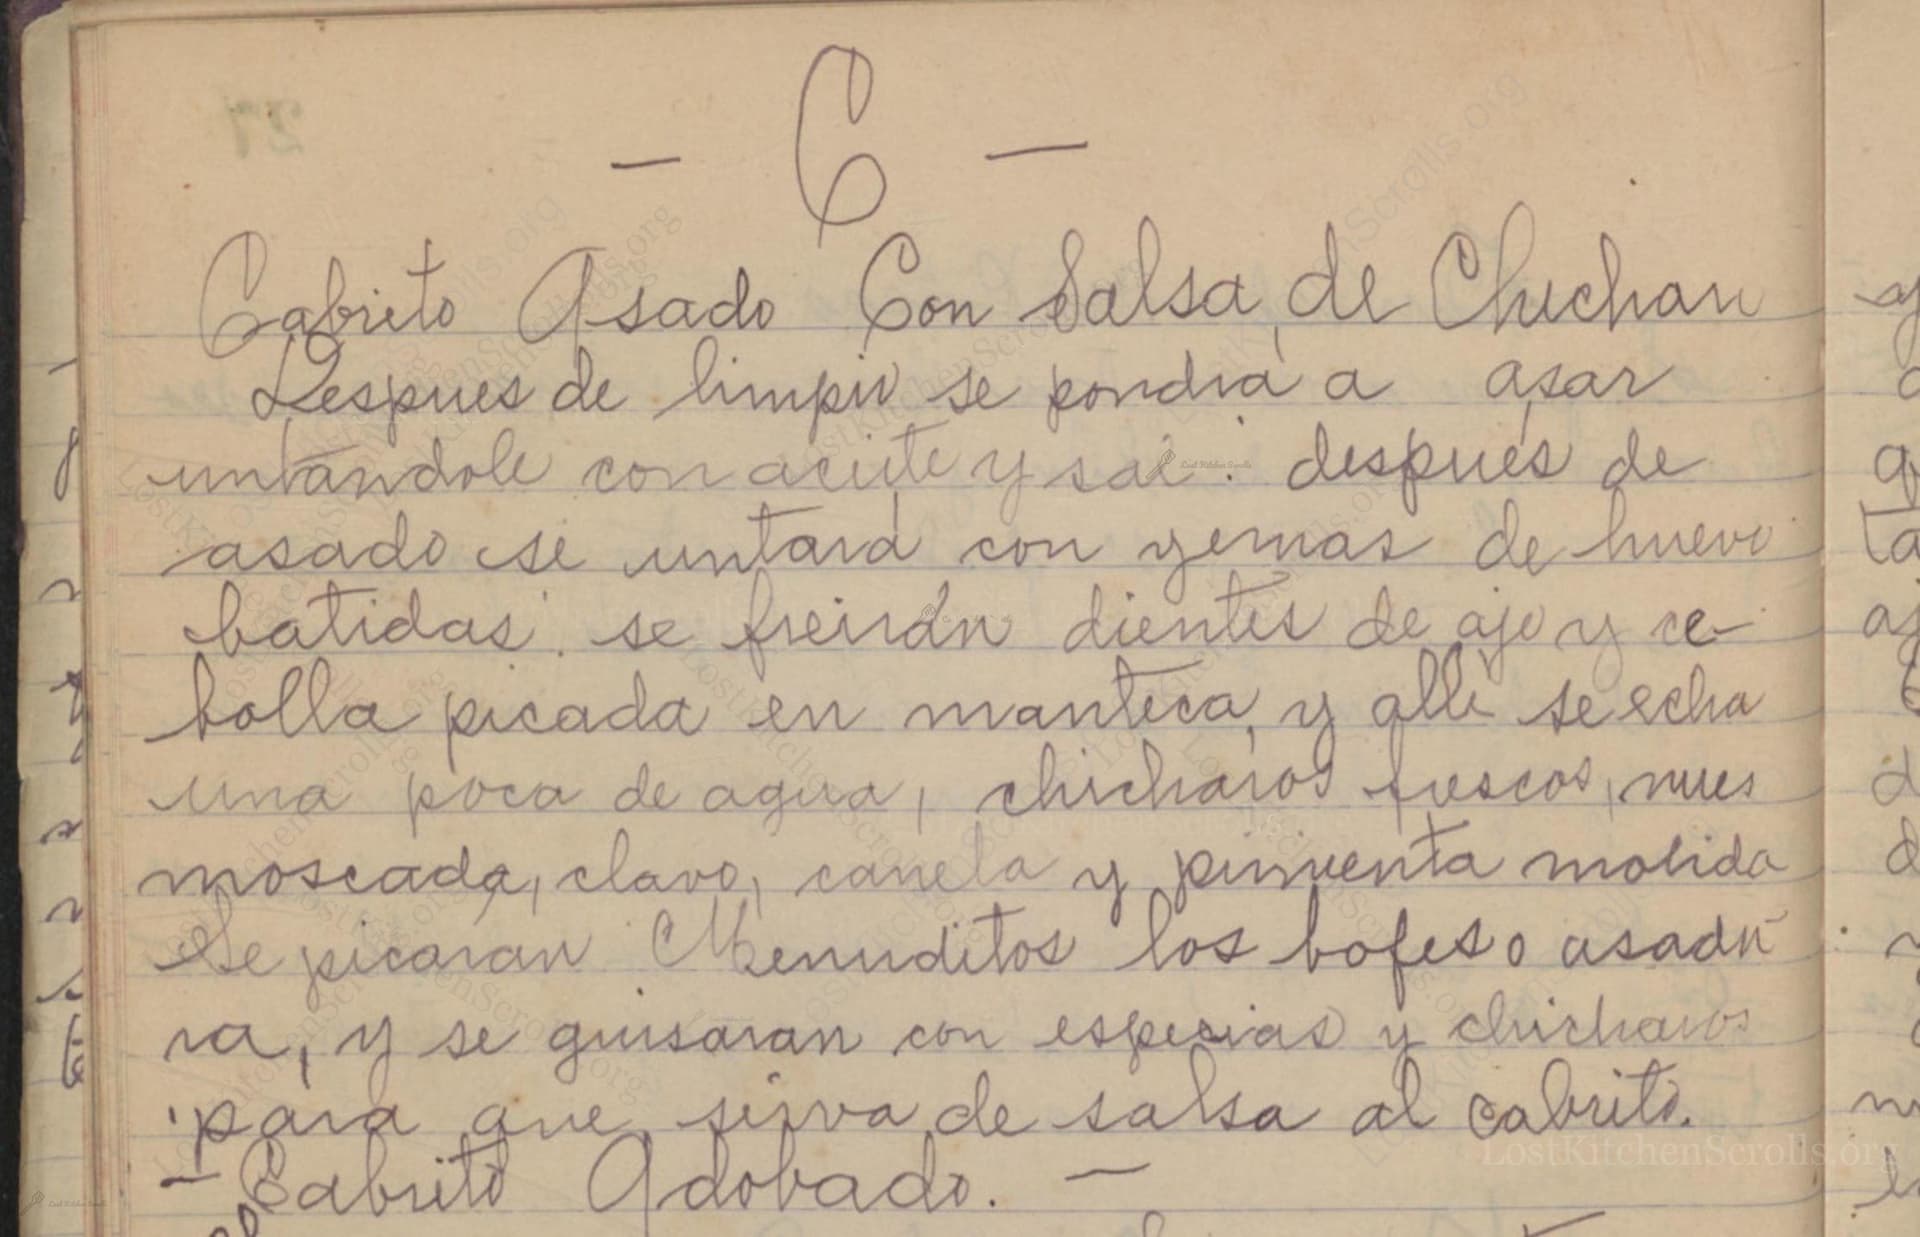 - C -
Cabrito Asado Con Salsa de Chichar
Despues de limpio se pondrá a asar
untándole con aceite y sal. después de
asado se untará con yemas de huevo
batidas. se freirán dientes de ajo y ce-
bolla picada en manteca, y allí se echa
una poca de agua, chicharos frescos, nues
moscada, clavo, canela y pimienta molida
Se picaran Menuditos los bofes o asadu
ra, y se guisaran con especias y chicharos
para que sirva de salsa al cabrito.
- Cabrito Adobado. -
LostKitchenScrolls.org